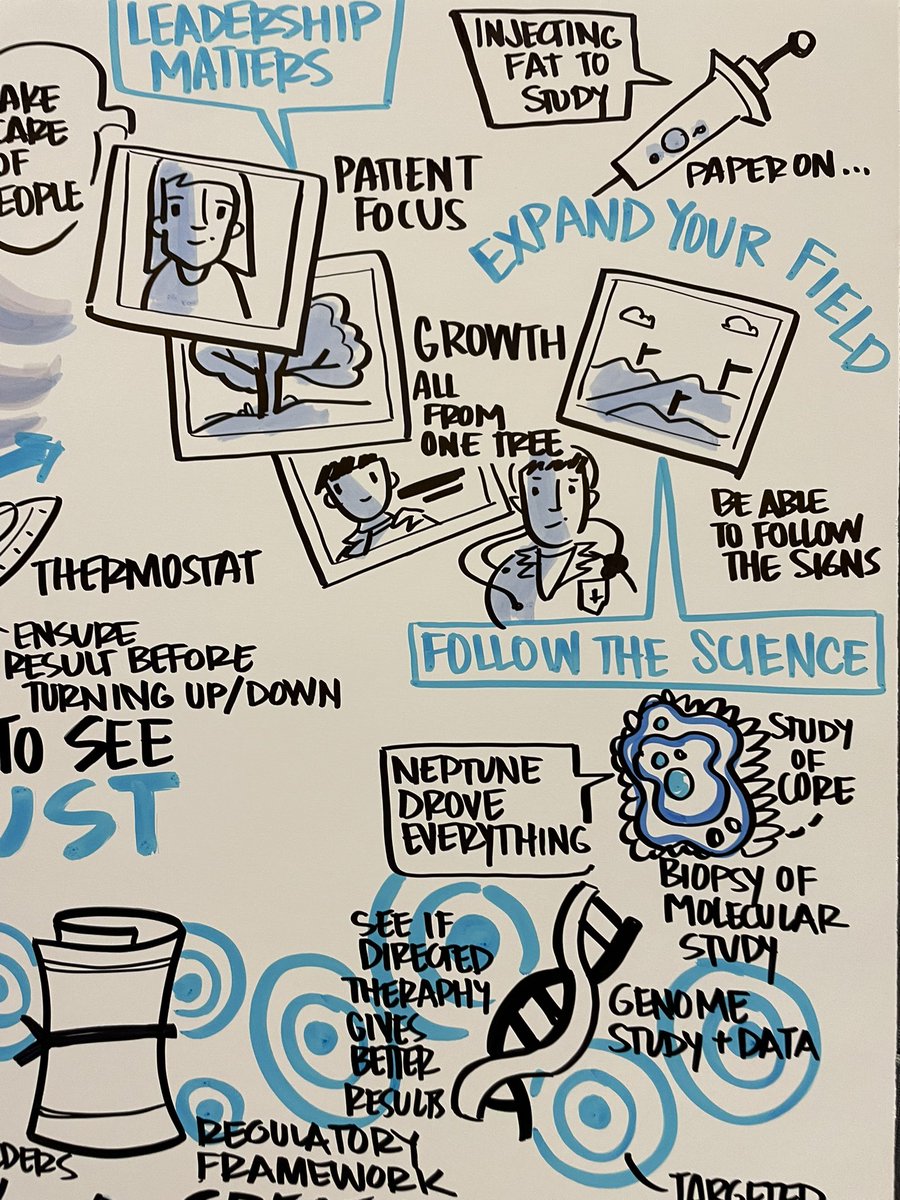 LEADERSHIP
MATTERS
INJECTING
FAT TO
STUDY
PAPER ON...
AKE
CARE
OF
EOPLE
PATIENT
FOCUS
EXPAND YOUR FIELD
GROWTH
ALL
FROM
ONE TREE
BE ABLE
TO FOLLOW
THE SIGNS
THERMOSTAT
ENSURE
RESULT BEFORE
TURNING UP/DOWN
FOLLOW THE SCIENCE
TO SEE
UST
NEPTUNE
DROVE
EVERYTHING
STUDY
OF
CORE
BIOPSY OF
MOLECULAR
STUDY
SEE IF
DIRECTED
THERAPHY
GIVES
BETTER
RESULTS
GENOME
STUDY + DATA
REGULATORY
FRAMEWORK
DERS
TARGETED